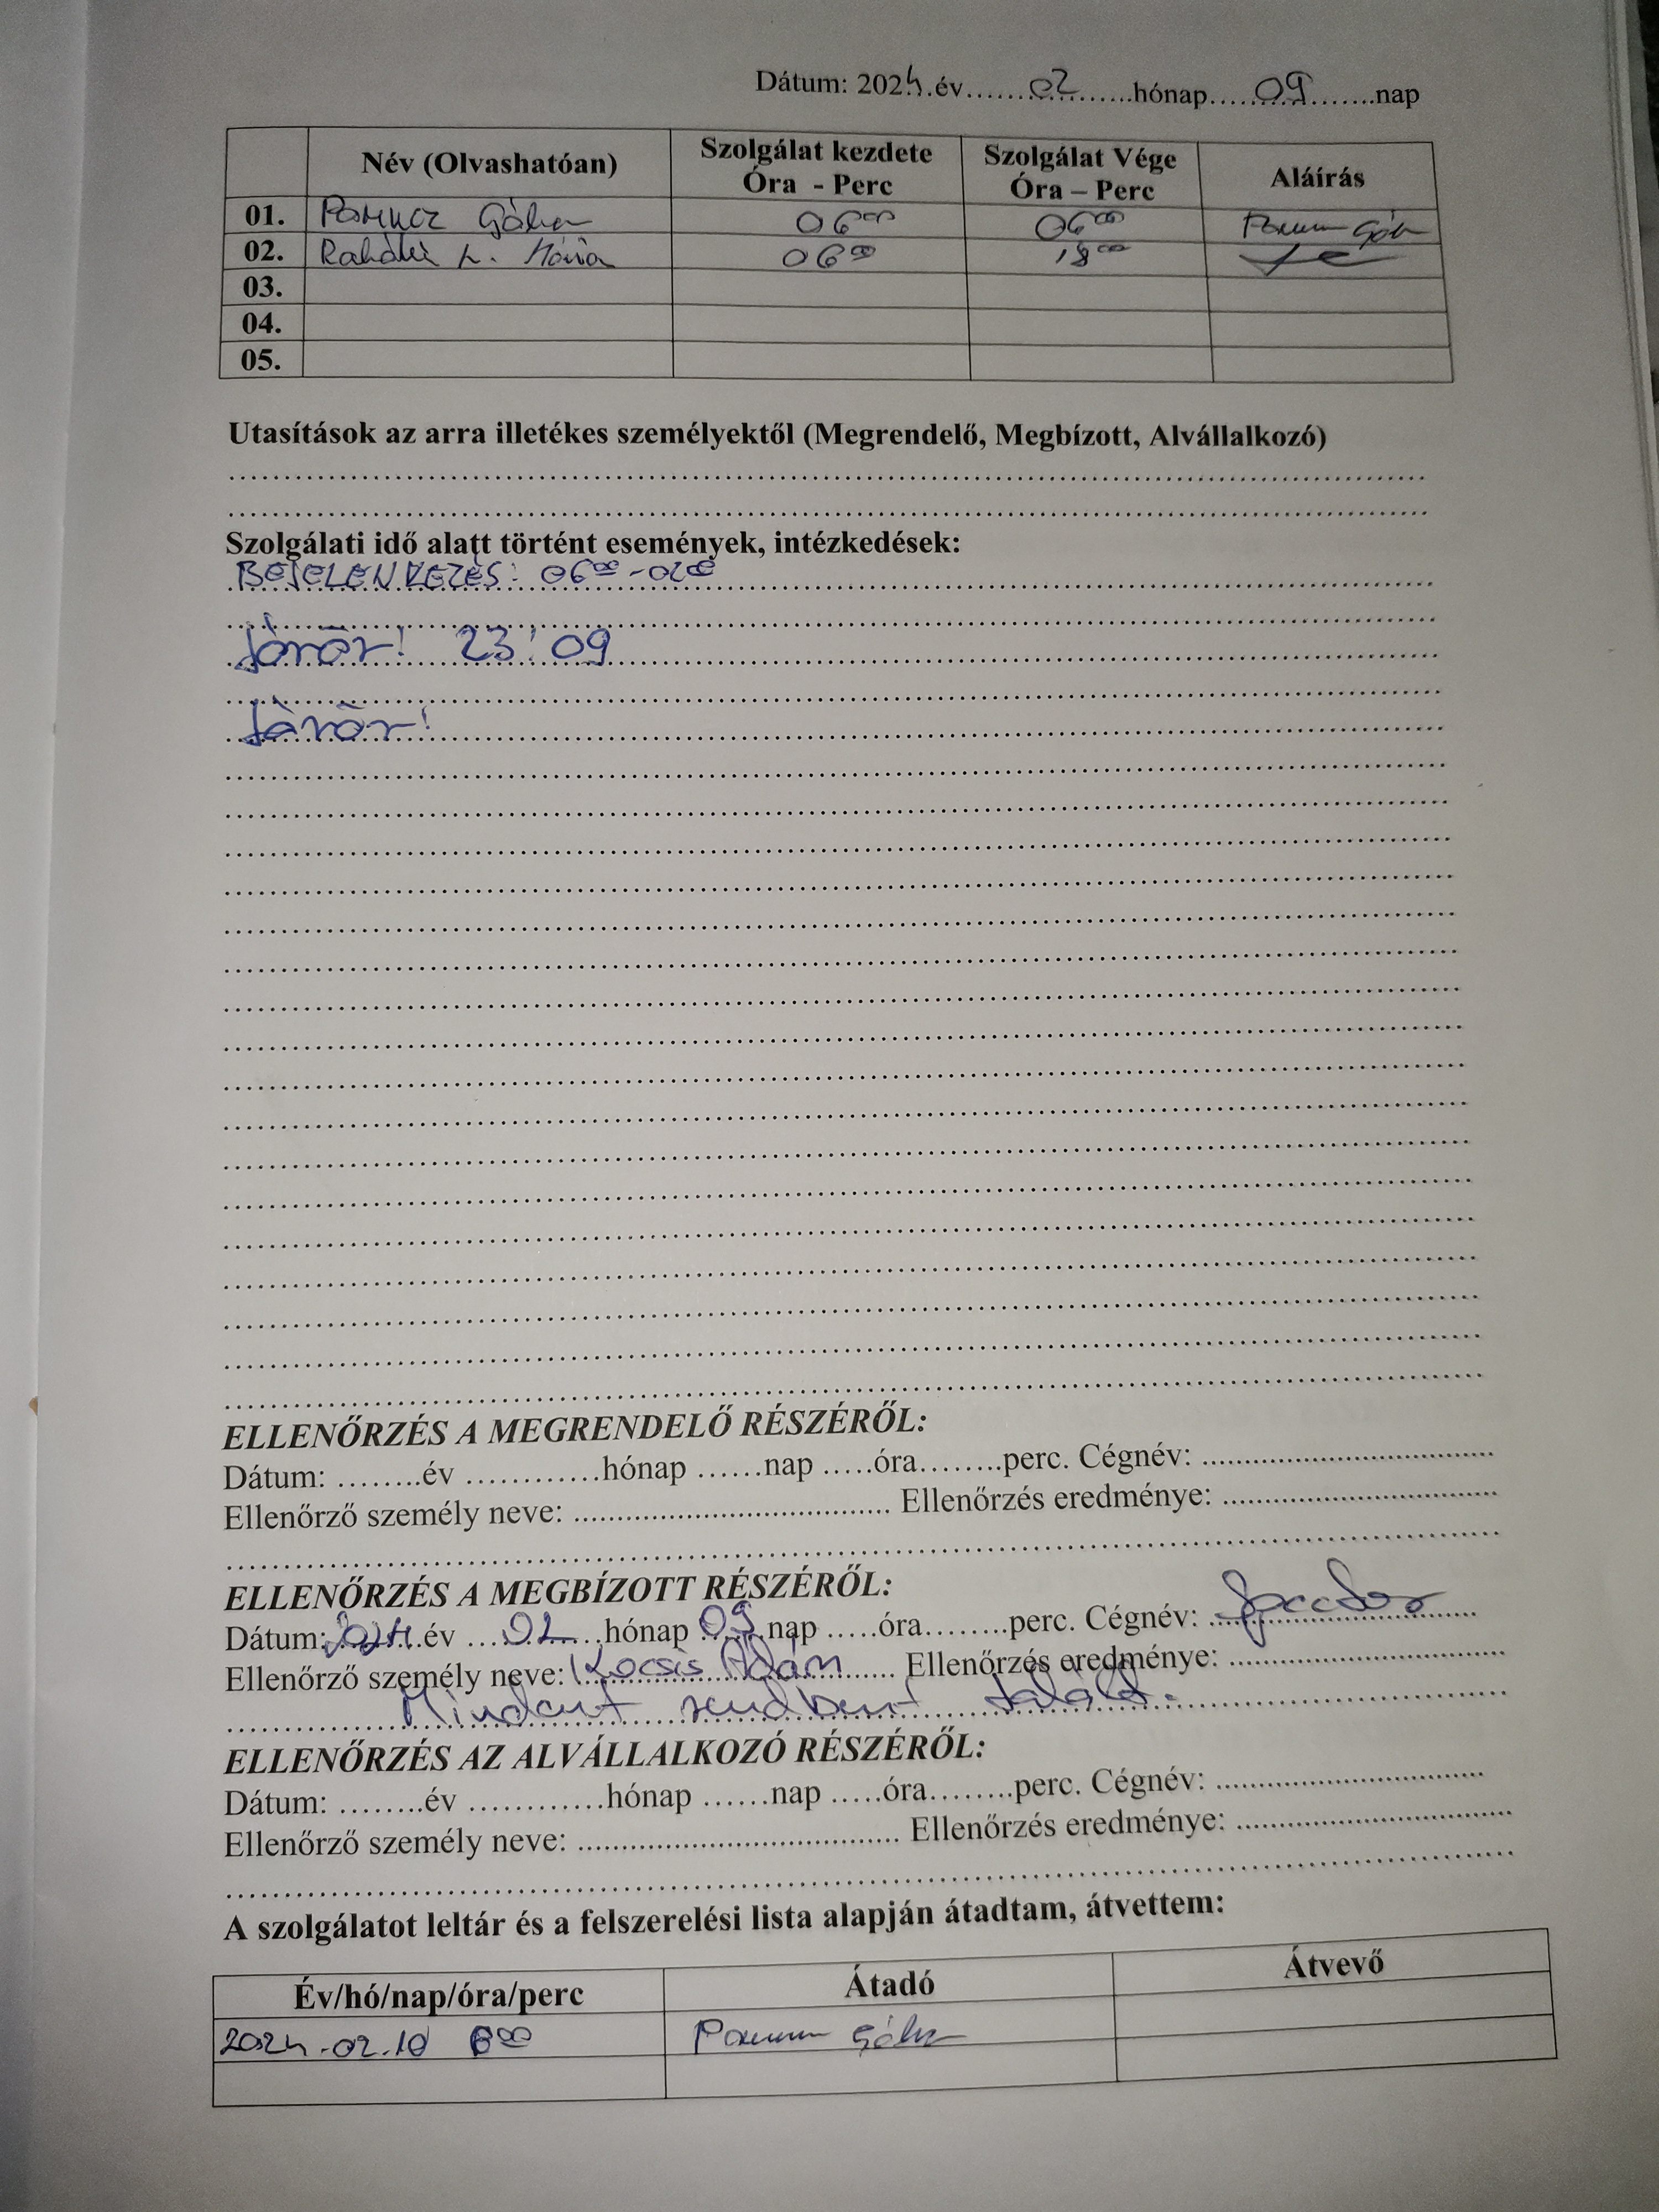 Dátum: 2024.év.......02........hónap......09........nap
Név (Olvashatóan) Szolgálat kezdete Óra - Perc Szolgálat Vége Óra – Perc Aláírás
01. Gábor 06 00 06 00
02. L. Mária 06 00 18 00
03.
04.
05.
Utasítások az arra illetékes személyektől (Megrendelő, Megbízott, Alvállalkozó)
Szolgálati idő alatt történt események, intézkedések:
BEJELENKEZÉS: 06 00 -
Járőr! 23:09
Járőr!
ELLENŐRZÉS A MEGRENDELŐ RÉSZÉRŐL:
Dátum: ........év ............hónap ......nap .....óra........perc. Cégnév: ..................................
Ellenőrző személy neve: .................................... Ellenőrzés eredménye: ................................
ELLENŐRZÉS A MEGBÍZOTT RÉSZÉRŐL:
Dátum: 2024.év ....02....hónap 09 nap .....óra........perc. Cégnév:
Ellenőrző személy neve: Kocsis Ádám ...... Ellenőrzés eredménye: ................................
Mindent rendben talált.
ELLENŐRZÉS AZ ALVÁLLALKOZÓ RÉSZÉRŐL:
Dátum: ........év ............hónap ......nap .....óra........perc. Cégnév: ...............................
Ellenőrző személy neve: ..................................... Ellenőrzés eredménye: ................................
A szolgálatot leltár és a felszerelési lista alapján átadtam, átvettem:
Év/hó/nap/óra/perc Átadó Átvevő
2024.02.10 6 00 Gábor